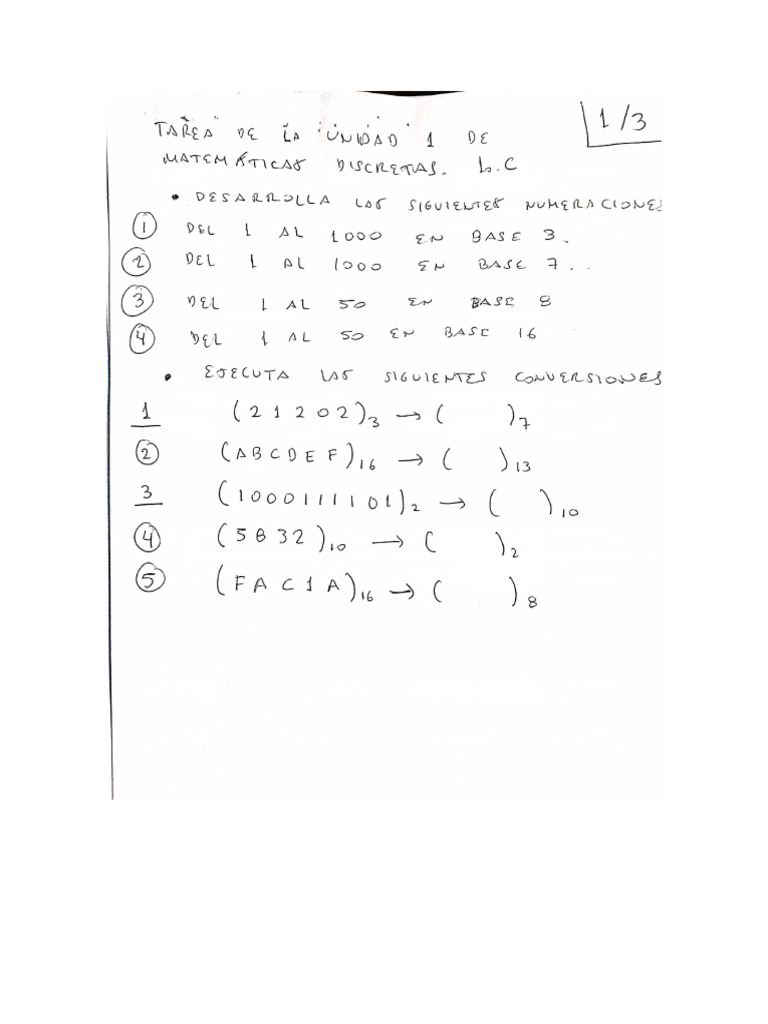 1/3
TAREA DE LA UNIDAD 1 DE
MATEMÁTICAS DISCRETAS. L.C
• DESARROLLA LAS SIGUIENTES NUMERACIONES
① DEL 1 AL 1000 EN BASE 3.
② DEL 1 AL 1000 EN BASE 7..
③ DEL 1 AL 50 EN BASE 8
④ DEL 1 AL 50 EN BASE 16
• EJECUTA LAS SIGUIENTES CONVERSIONES
1 (21202)₃ → ( )₇
② (ABCDEF)₁₆ → ( )₁₃
3 (1000111101)₂ → ( )₁₀
④ (5832)₁₀ → ( )₂
⑤ (FAC1A)₁₆ → ( )₈